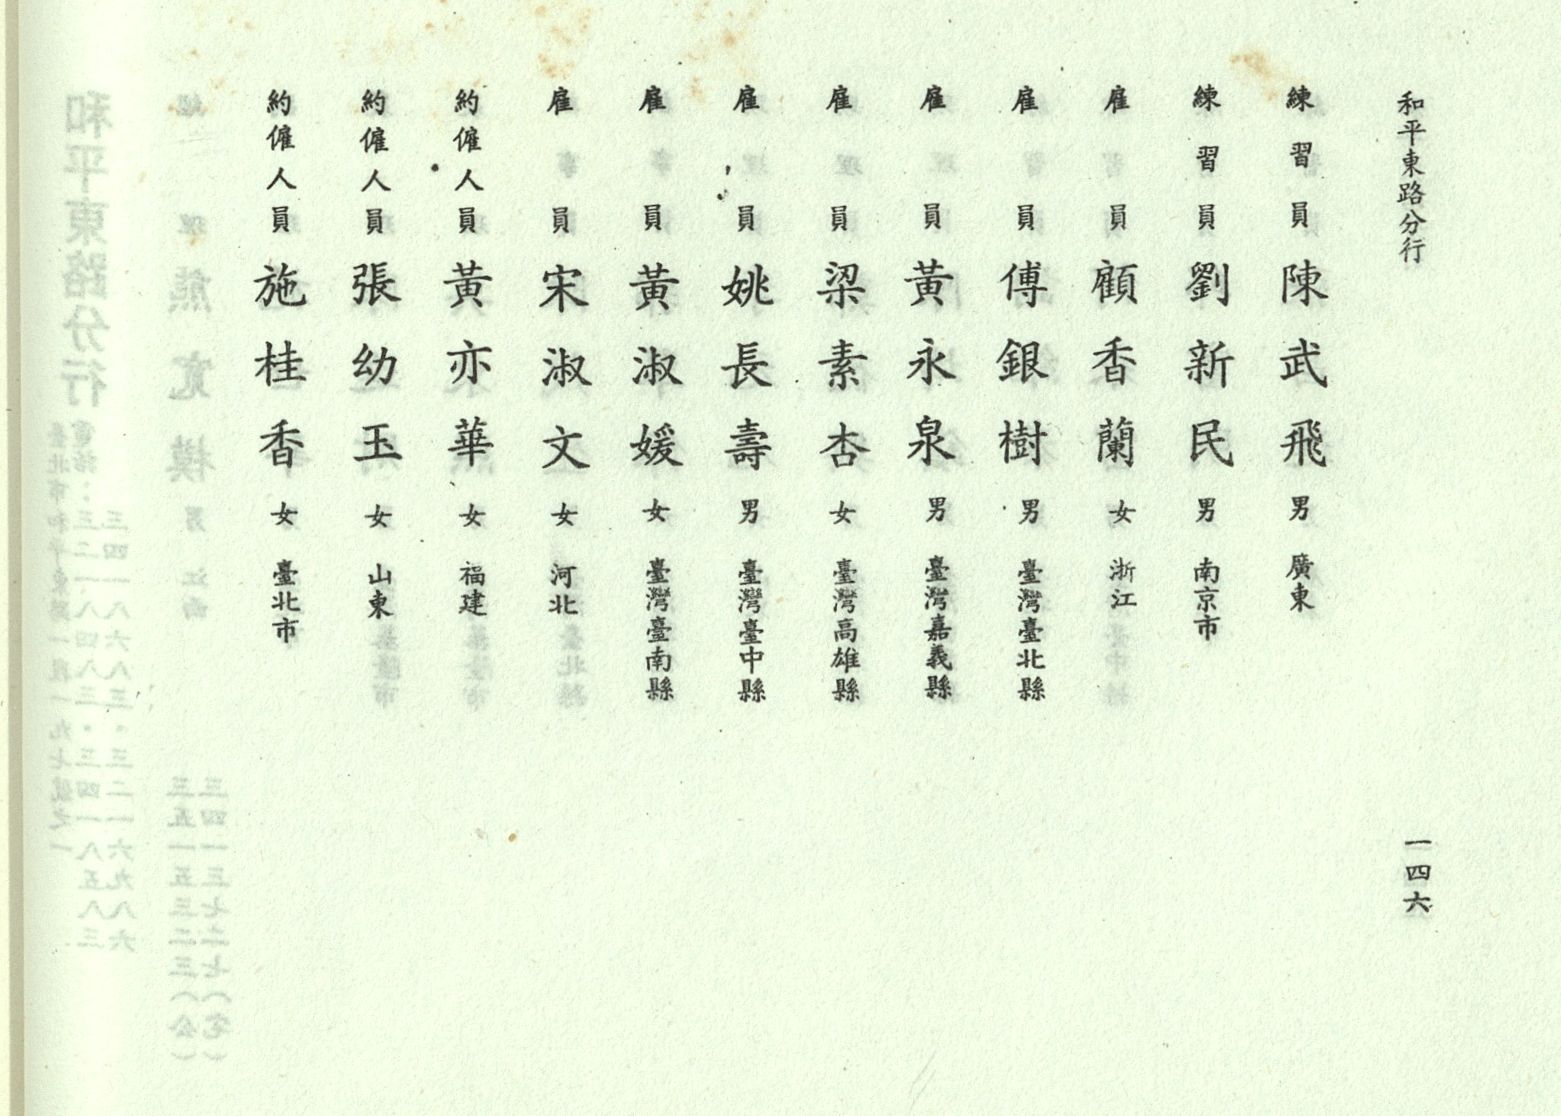 和平東路分行
一四六
練習員 陳武飛 男 廣東
練習員 劉新民 男 南京市
雇員 顧香蘭 女 浙江
雇員 傅銀樹 男 臺灣臺北縣
雇員 黃永泉 男 臺灣嘉義縣
雇員 梁素杏 女 臺灣高雄縣
雇員 姚長壽 男 臺灣臺中縣
雇員 黃淑媛 女 臺灣臺南縣
雇員 宋淑文 女 河北
約僱人員 黃亦華 女 福建
約僱人員 張幼玉 女 山東
約僱人員 施桂香 女 臺北市